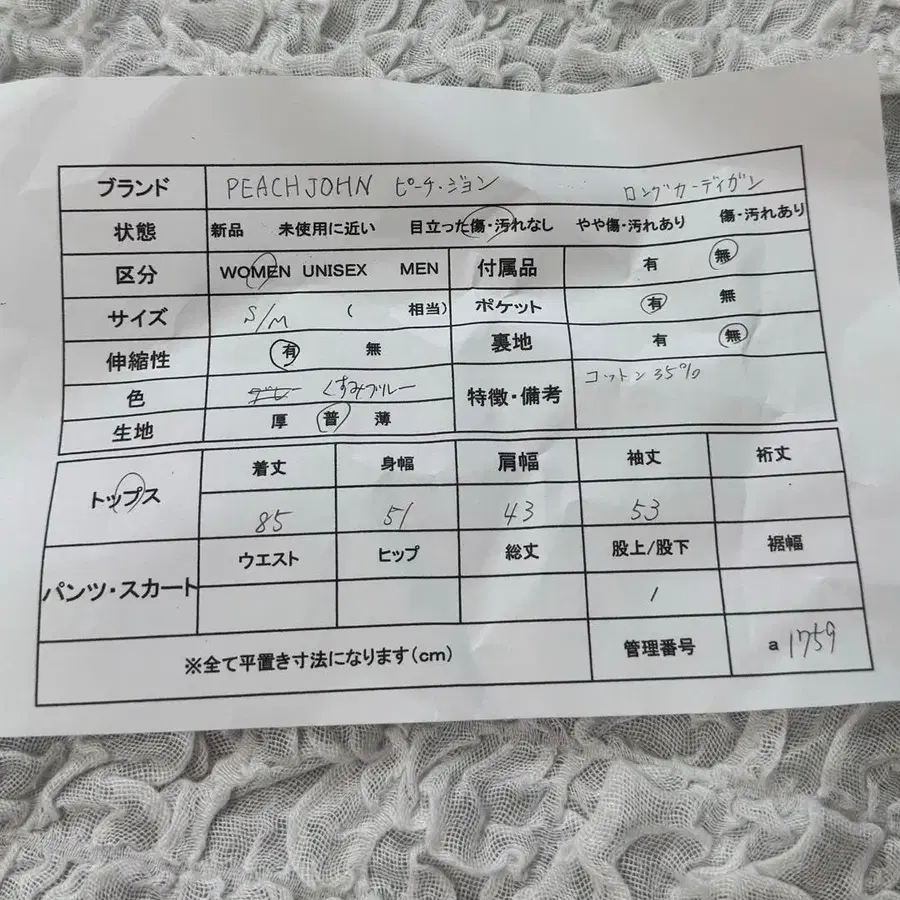 ブランド PEACHJOHN ピーチ・ジョン ロングカーディガン
状態 新品 未使用に近い 目立った傷・汚れなし やや傷・汚れあり 傷・汚れあり
区分 WOMEN UNISEX MEN 付属品 有 無
サイズ S/M ( 相当) ポケット 有 無
伸縮性 有 無 裏地 有 無
色 くすみブルー 特徴・備考 コットン35%
生地 厚 普 薄
トップス 着丈 身幅 肩幅 袖丈 裄丈
85 51 43 53
パンツ・スカート ウエスト ヒップ 総丈 股上/股下 裾幅
/
※全て平置き寸法になります(cm) 管理番号 a 1759